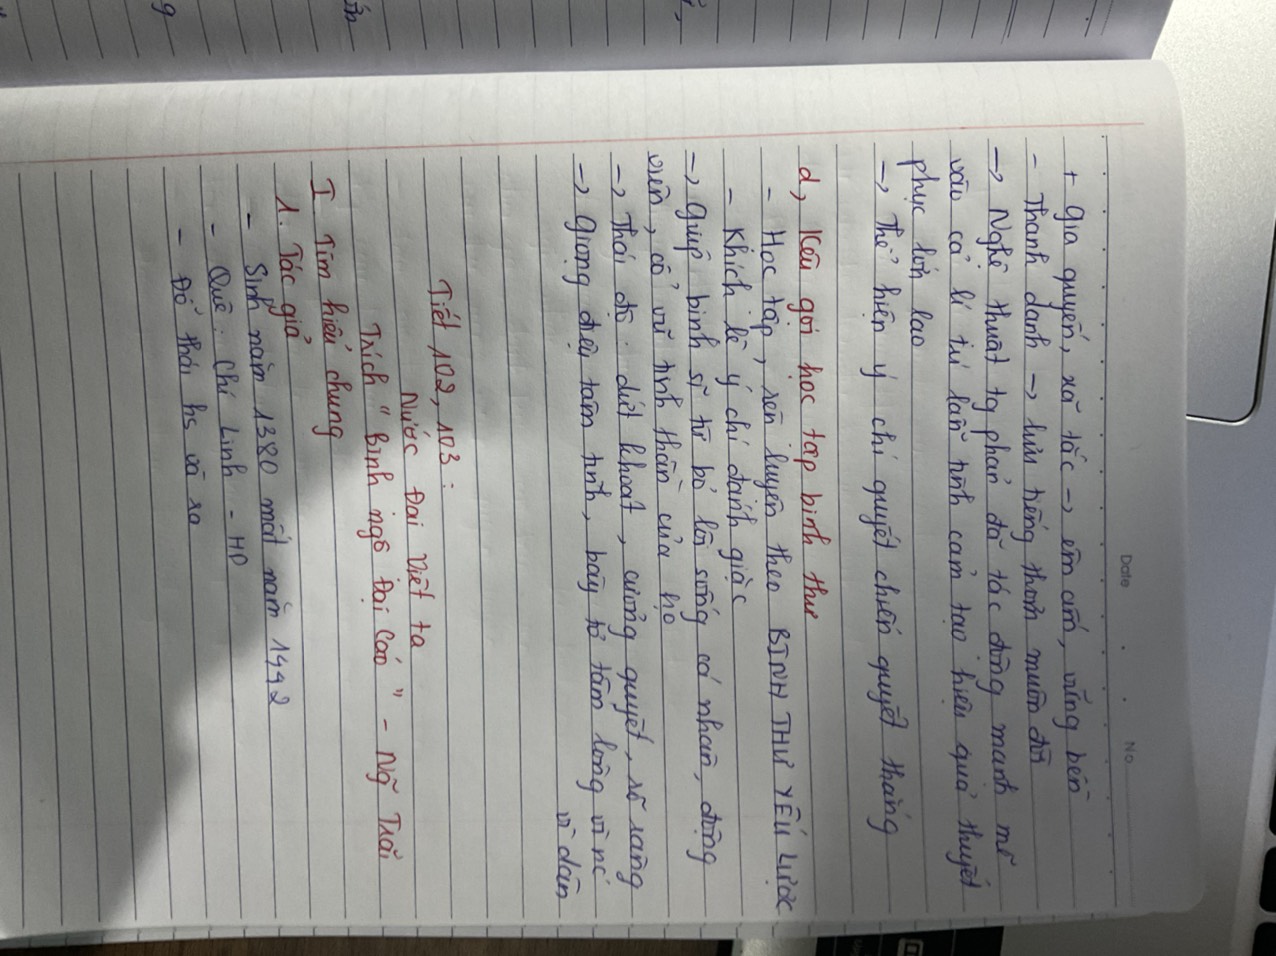 Date . . No
+ gia quyến, xã tắc → êm ấm, vững bền
- Thanh danh → lưu tiếng thơm muôn đời
→ Nghệ thuật tg phản đã tác động mạnh mẽ
vào cả lí trí lẫn tình cảm tạo hiệu quả thuyết
phục lớn lao
→ Thể hiện ý chí quyết chiến quyết thắng
d, Kêu gọi học tập binh thư
- Học tập, rèn luyện theo BINH THƯ YẾU LƯỢC
- Khích lệ ý chí đánh giặc
→ giúp binh sĩ từ bỏ lối sống cá nhân, động
viên, cổ vũ tinh thần của họ
→ Thái độ: dứt khoát, cương quyết, rõ ràng
→ giọng điệu tâm tình, bày tỏ tấm lòng vì nc
vì dân
Tiết 102, 103:
Nước Đại Việt ta
Trích "Bình ngô Đại Cáo" - Ng~ Trãi
I. Tìm hiểu chung
1. Tác giả
- Sinh năm 1380 mất năm 1442
- Quê: Chí Linh - HD
- Đỗ thái hs
g